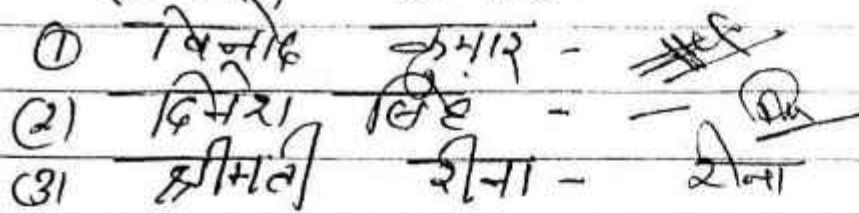 ① विनोद कुमार -
(2) दिनेश सिंह - -
(3) श्रीमती रीना - रीना